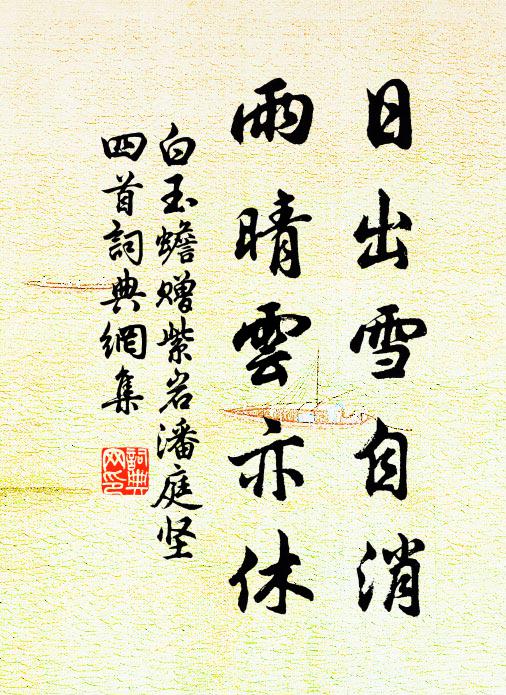 日出雪自消
雨晴雲亦休
白玉蟾赠紫岩潘庭坚
四首詞典網集
詞典
网印